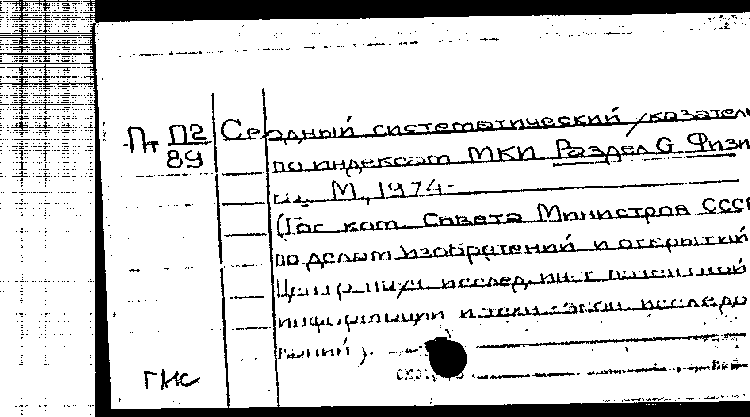 Пт П2 Сводный систематический указател
89 по индексам МКИ Раздел G Физи
М., 1974-
(Гос. ком. Совета Министров СССР
по делам изобретений и открытий
исслед. ин-т патентной
информации и техн.-экон. исследо
ваний).
ГНС